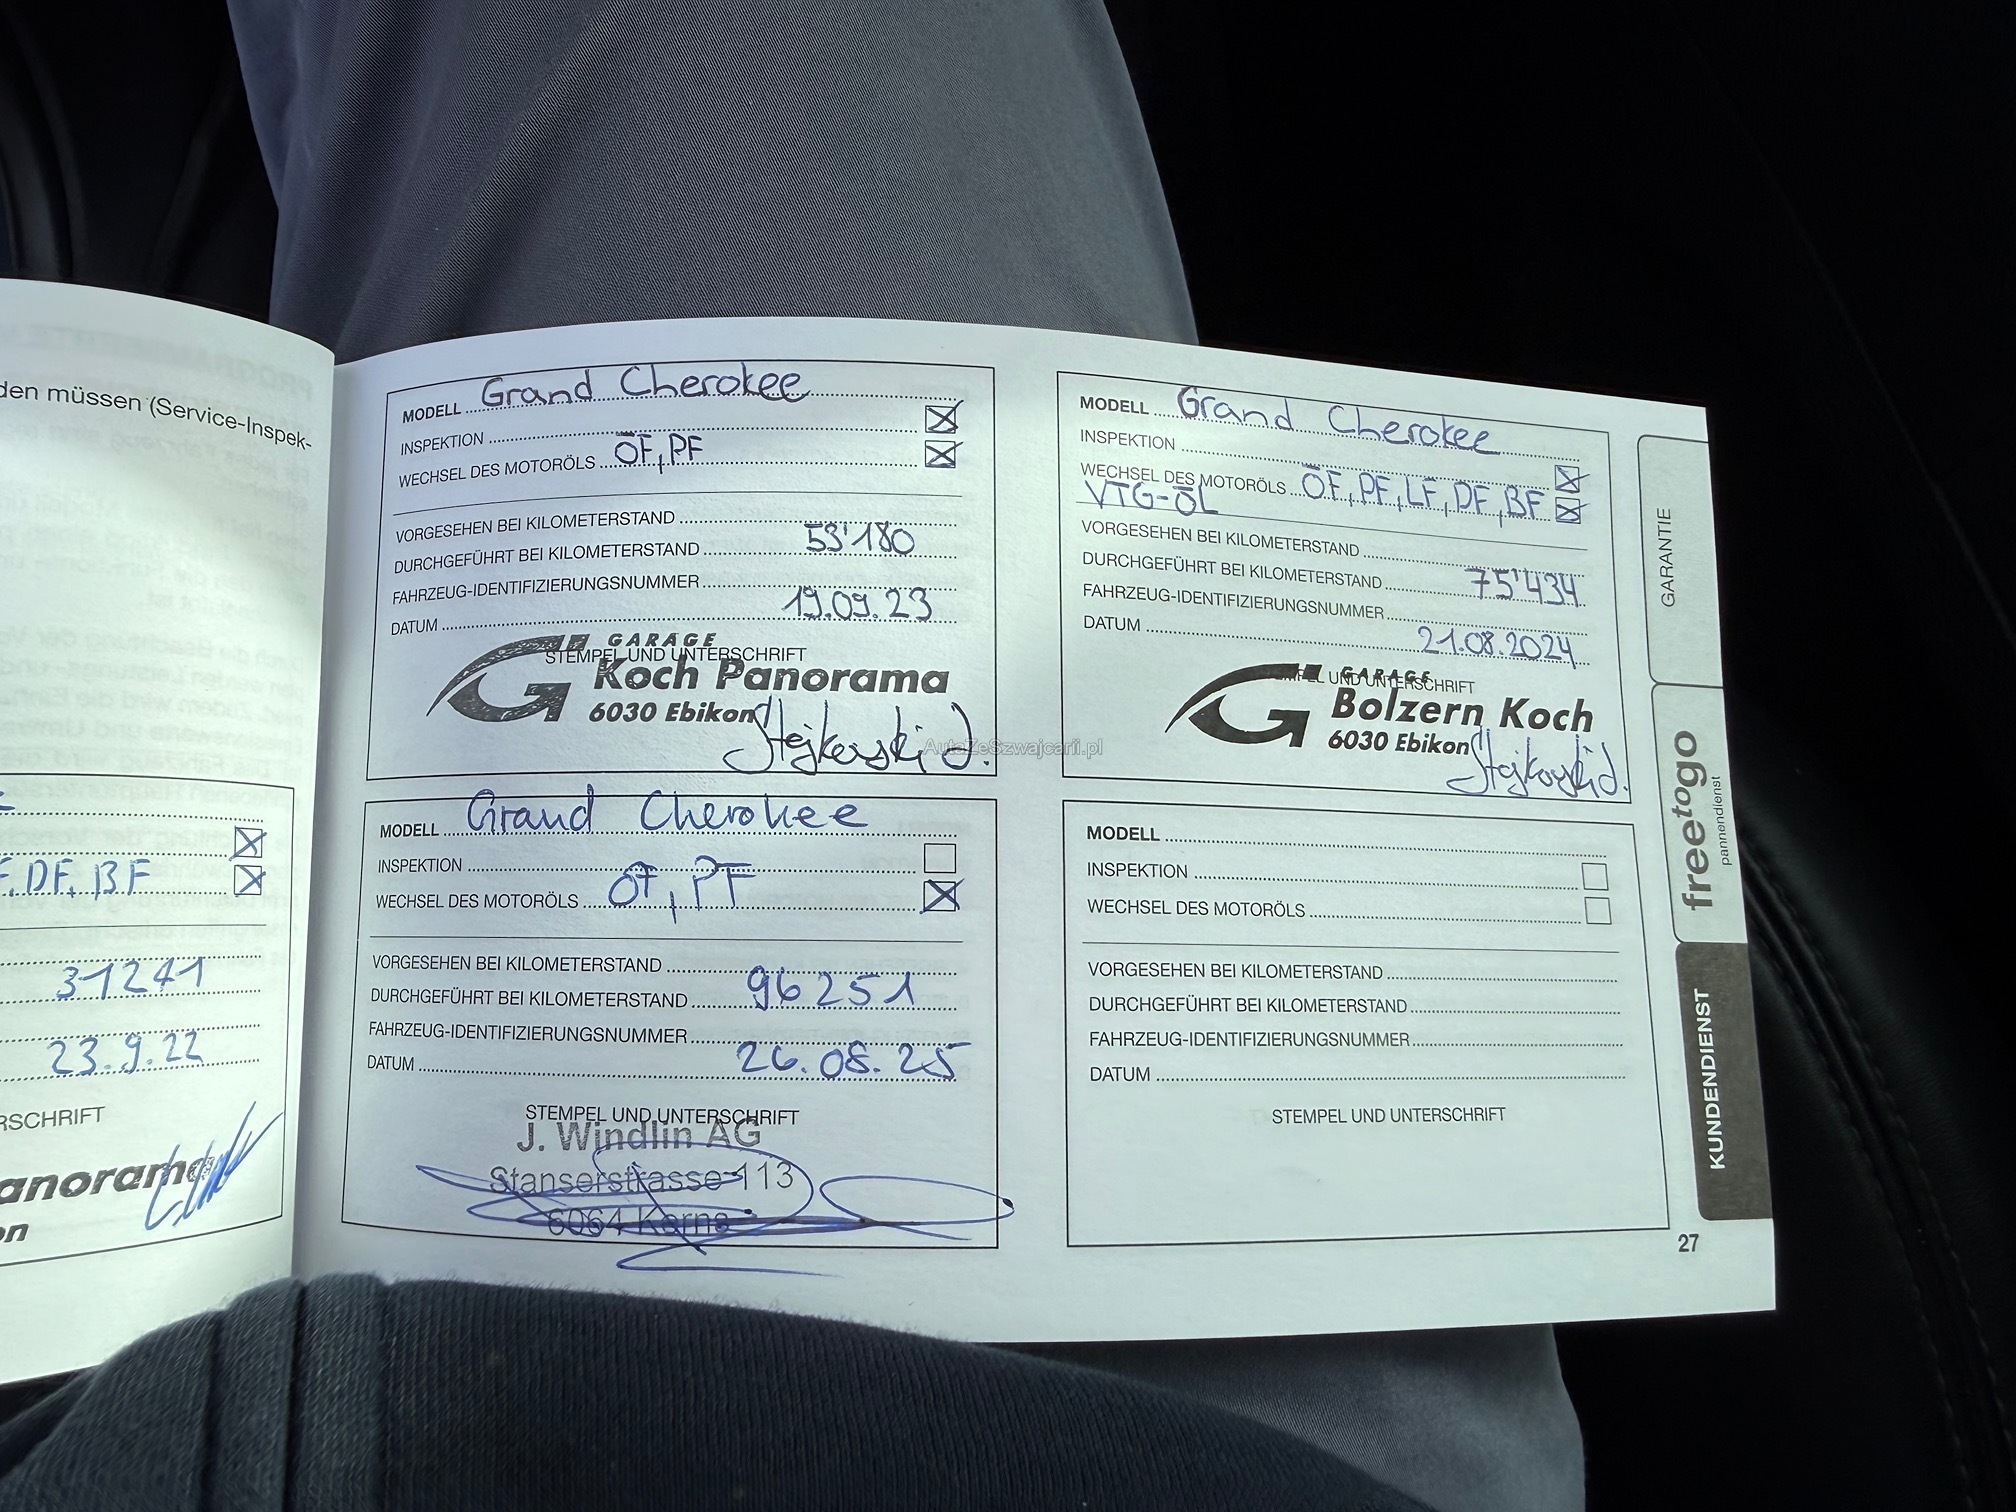 den müssen (Service-Inspek-
DF, BF
31241
23.9.22
RSCHRIFT
anorama
on
MODELL Grand Cherokee
INSPEKTION
WECHSEL DES MOTORÖLS ÖF, PF
VORGESEHEN BEI KILOMETERSTAND
DURCHGEFÜHRT BEI KILOMETERSTAND 53'180
FAHRZEUG-IDENTIFIZIERUNGSNUMMER
DATUM 19.09.23
STEMPEL UND UNTERSCHRIFT
GARAGE
Koch Panorama
6030 Ebikon
MODELL Grand Cherokee
INSPEKTION
WECHSEL DES MOTORÖLS ÖF, PF, LF, DF, BF
VTG-ÖL
VORGESEHEN BEI KILOMETERSTAND
DURCHGEFÜHRT BEI KILOMETERSTAND 75'434
FAHRZEUG-IDENTIFIZIERUNGSNUMMER
DATUM 21.08.2024
STEMPEL UND UNTERSCHRIFT
GARAGE
Bolzern Koch
6030 Ebikon
AutoZeSzwajcarii.pl
MODELL Grand Cherokee
INSPEKTION
WECHSEL DES MOTORÖLS ÖF, PF
VORGESEHEN BEI KILOMETERSTAND
DURCHGEFÜHRT BEI KILOMETERSTAND 96251
FAHRZEUG-IDENTIFIZIERUNGSNUMMER
DATUM 26.08.25
STEMPEL UND UNTERSCHRIFT
J. Windlin AG
Stanserstrasse 113
6064 Kerns
MODELL
INSPEKTION
WECHSEL DES MOTORÖLS
VORGESEHEN BEI KILOMETERSTAND
DURCHGEFÜHRT BEI KILOMETERSTAND
FAHRZEUG-IDENTIFIZIERUNGSNUMMER
DATUM
STEMPEL UND UNTERSCHRIFT
GARANTIE
freetogo
pannendienst
KUNDENDIENST
27